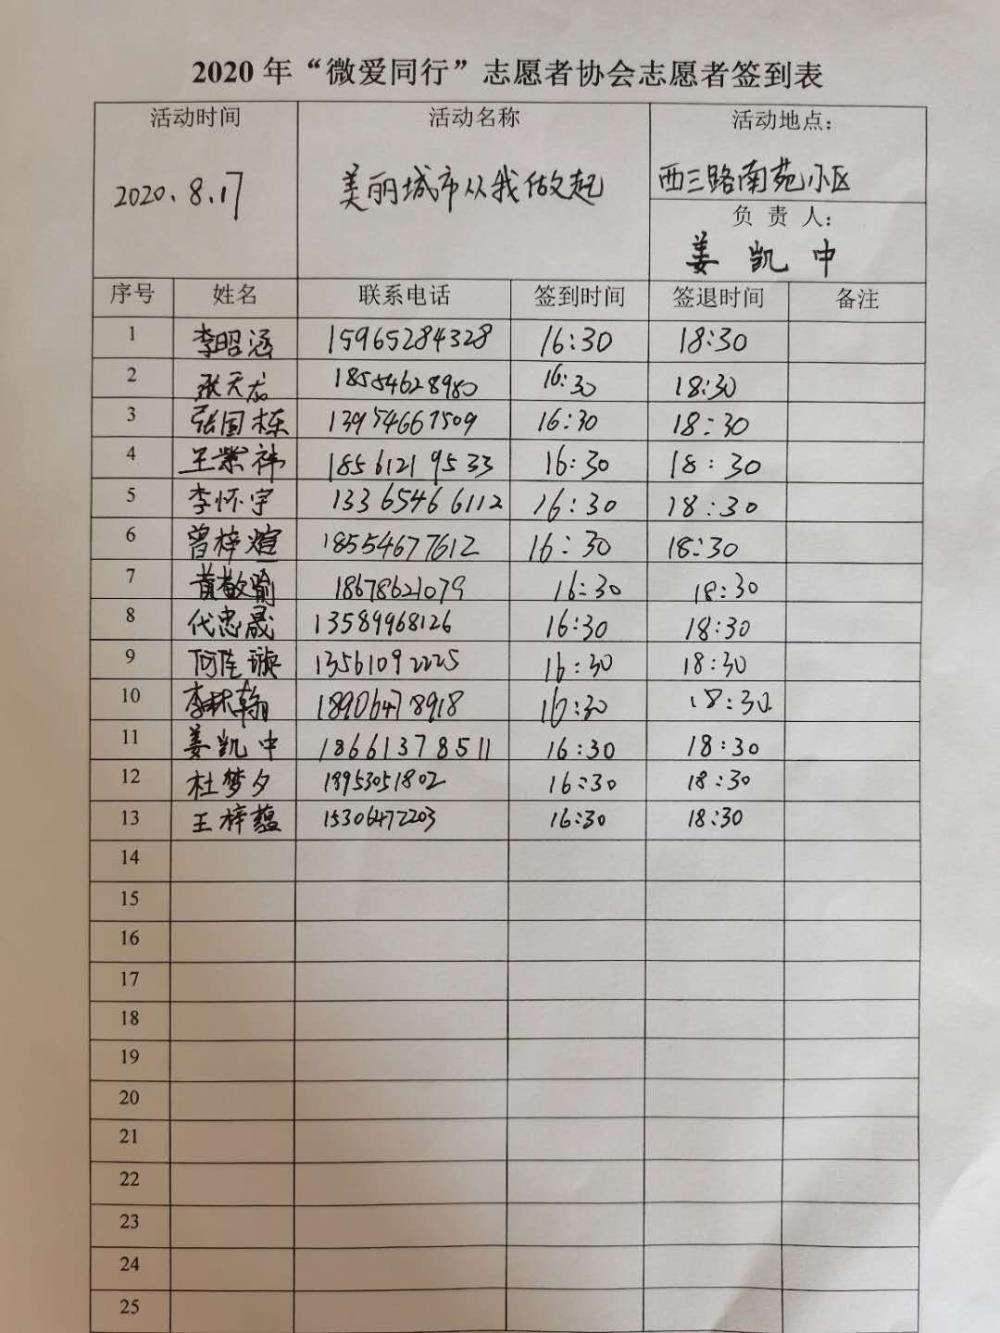 2020 年“微爱同行”志愿者协会志愿者签到表
活动时间 活动名称 活动地点：
2020.8.17 美丽城市从我做起 西三路南苑小区
负 责 人：
姜 凯 中
序号 姓名 联系电话 签到时间 签退时间 备注
1 李昭涵 15965284328 16:30 18:30
2 张天龙 18554628980 16:30 18:30
3 张国栋 13954667509 16:30 18:30
4 王紫祎 18561219533 16:30 18:30
5 李怀宇 13365466112 16:30 18:30
6 曾梓煊 18554677612 16:30 18:30
7 18678621079 16:30 18:30
8 代忠晟 13589968126 16:30 18:30
9 何佳璇 13561092225 16:30 18:30
10 李林翰 18906478918 16:30 18:30
11 姜凯中 18661378511 16:30 18:30
12 杜梦夕 18953051802 16:30 18:30
13 王梓蕴 15306472203 16:30 18:30
14
15
16
17
18
19
20
21
22
23
24
25